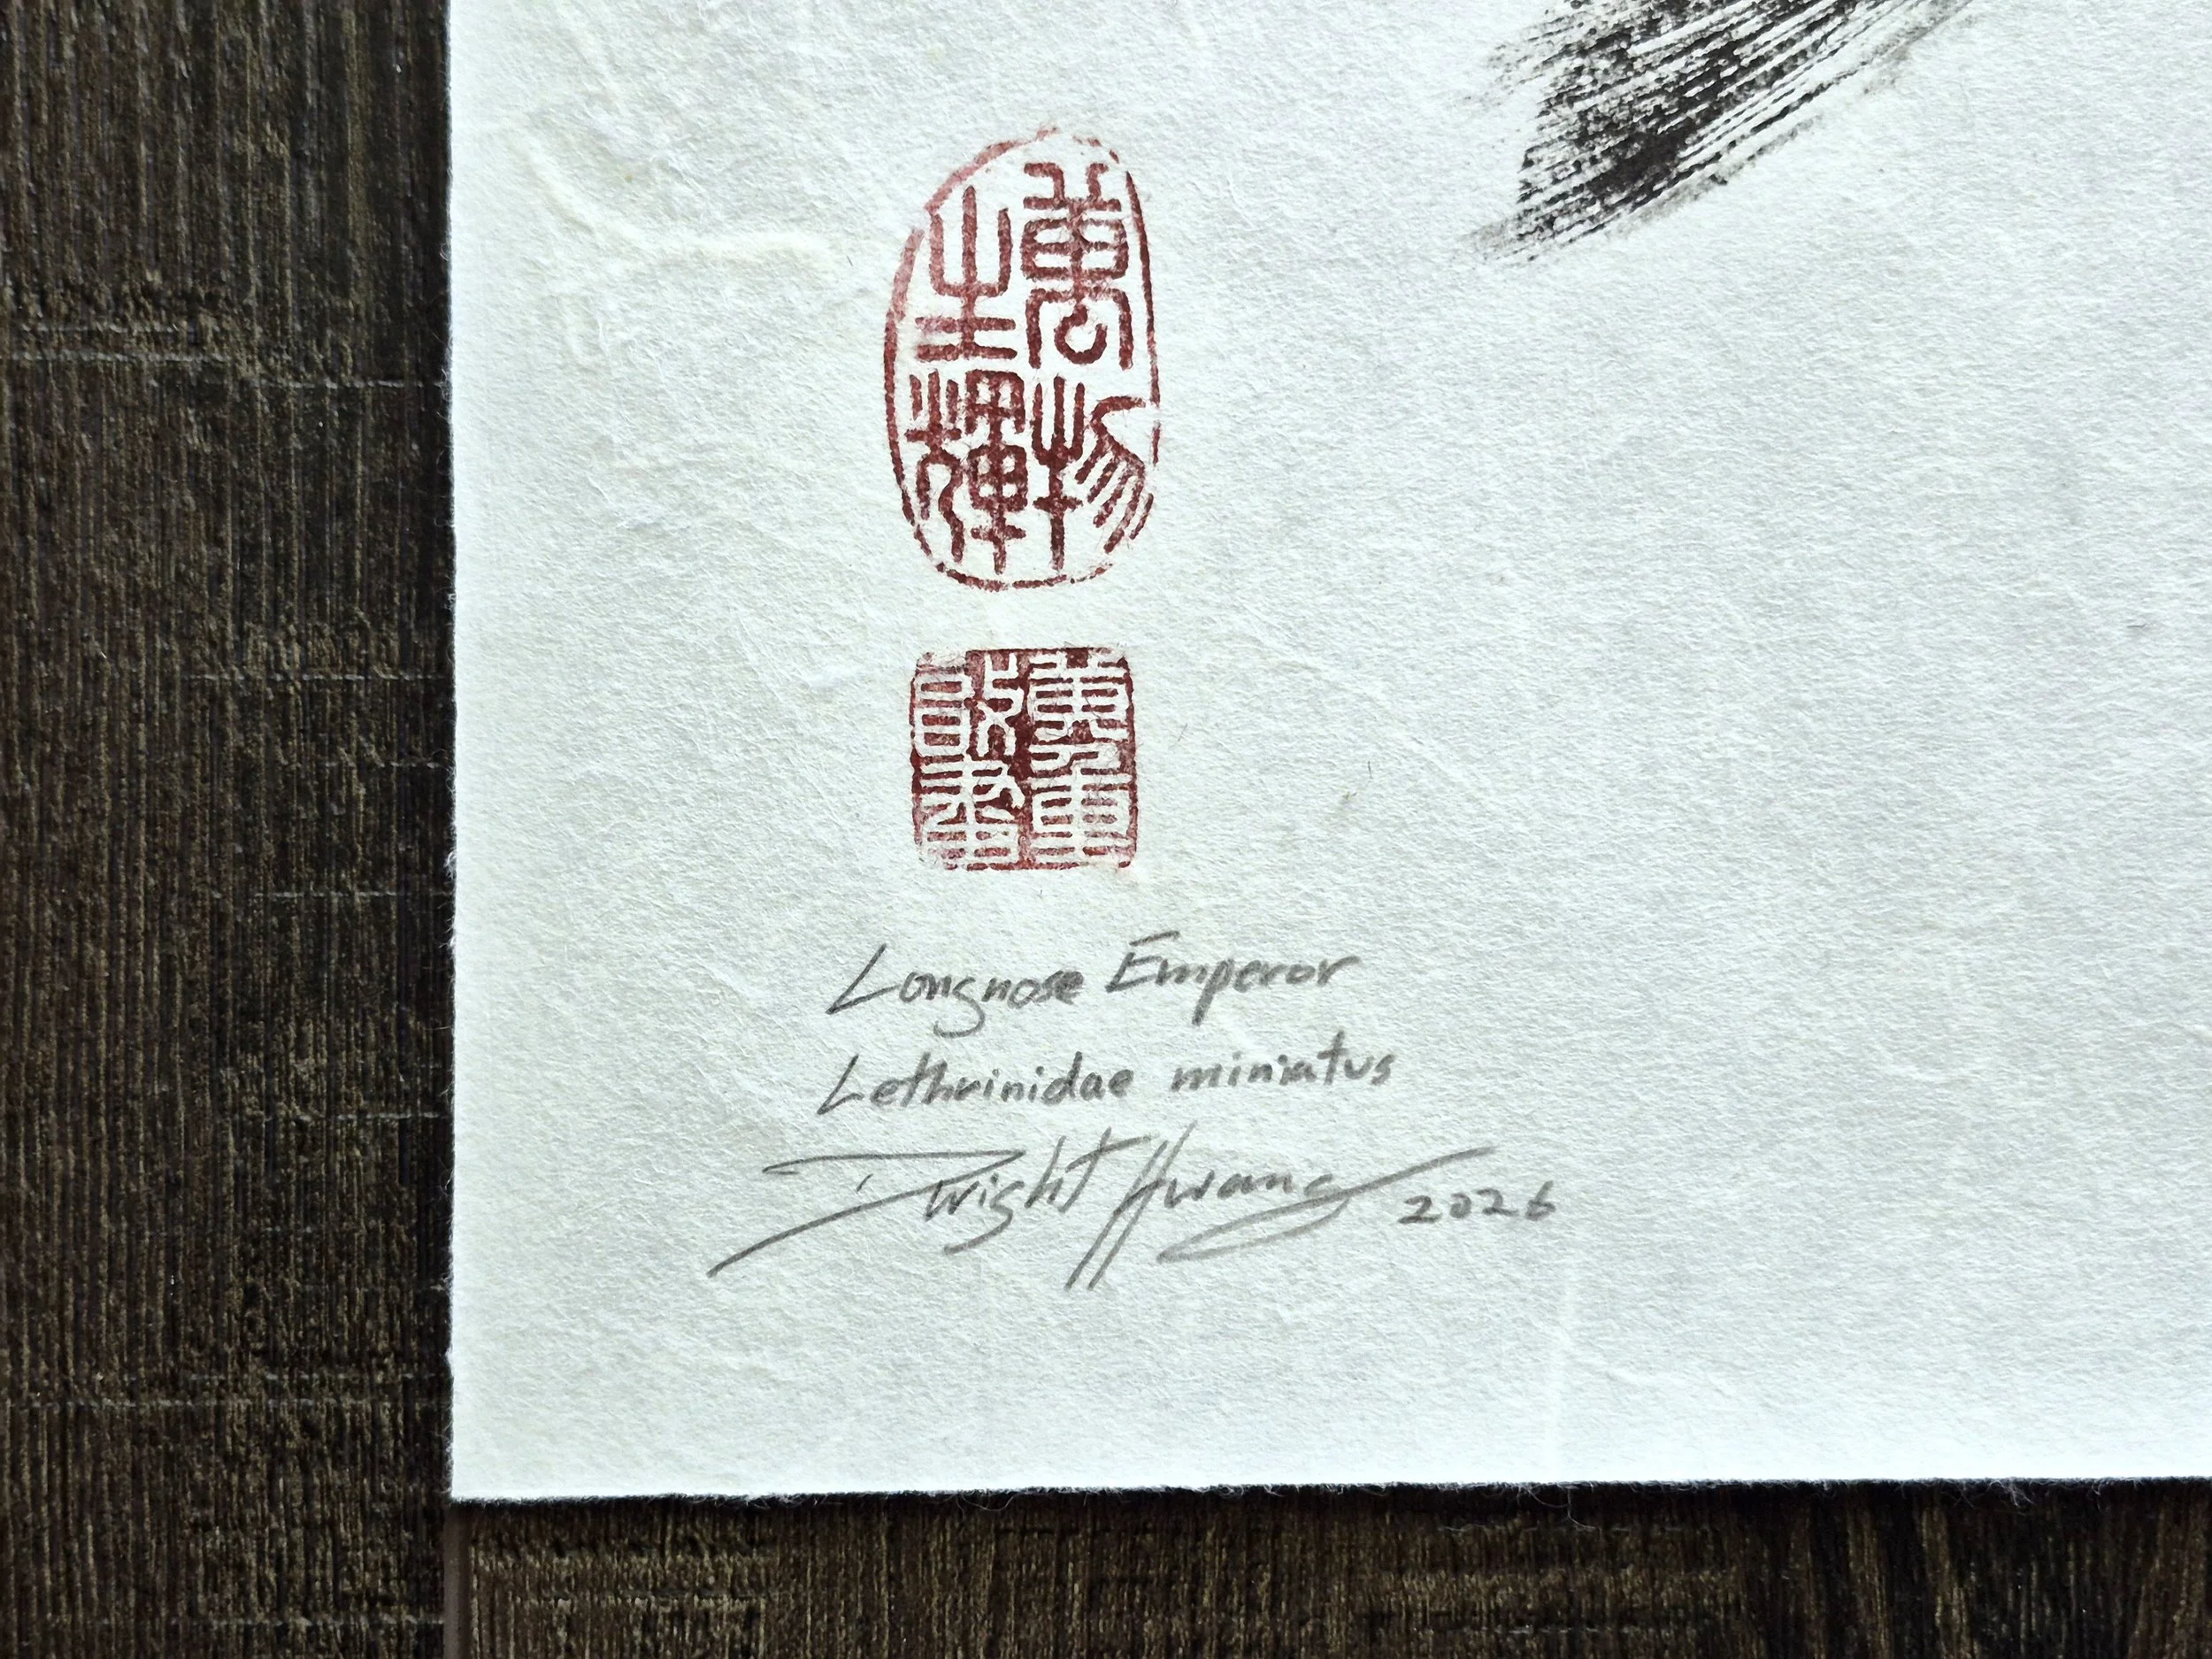 萬物
生輝
Longnose Emperor
Lethrinidae miniatus
Dwight Hwang 2026